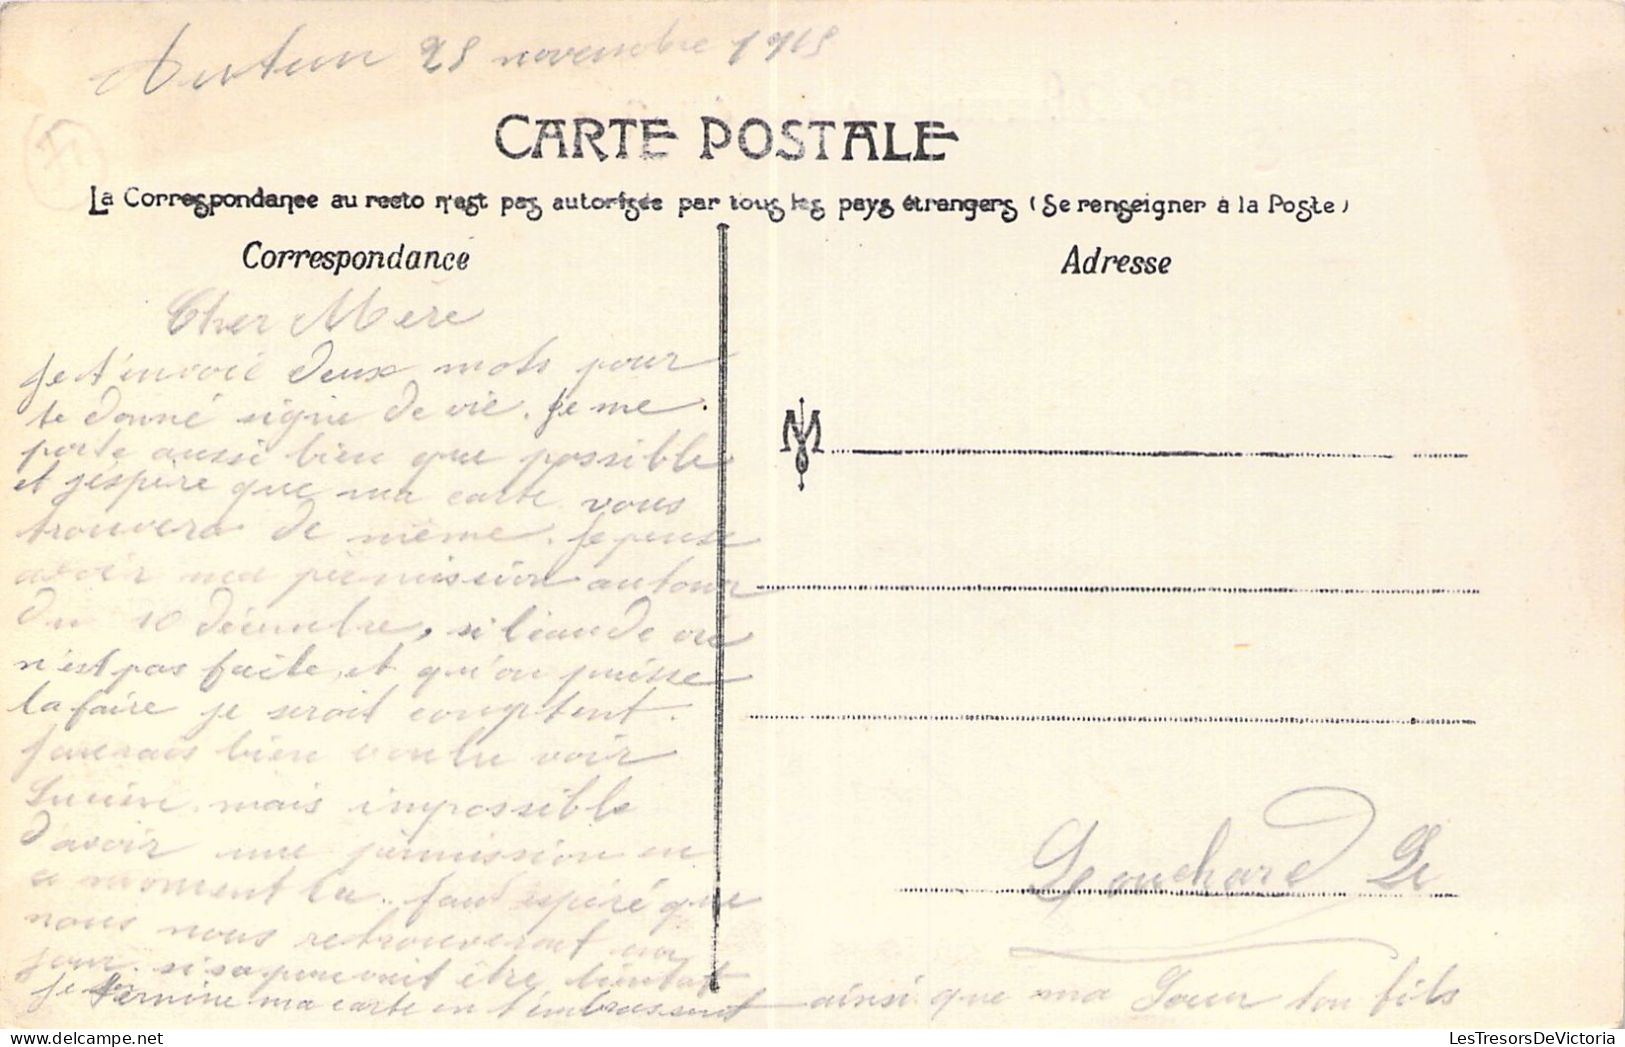 Autun 28 novembre 1915
CARTE POSTALE
La Correspondance au recto n'est pas autorisée par tous les pays étrangers (Se renseigner à la Poste)
Correspondance
Adresse
Cher Mère
Je t'envoie deux mots pour
te donné signe de vie. Je me
porte aussi bien que possible
et j'espère que ma carte vous
trouvera de même. Je pense
avoir ma permission autour
du 10 décembre, si
n'est pas facile, et qu'on puisse
la faire je serait comptent.
J'aurais bien voulu voir
mais impossible
d'avoir une permission en
ce moment la. faut espéré que
nous nous retrouveront un
jour. si sa pouvait être bientôt
Je termine ma carte en t'embrassent ainsi que ma Sœur ton fils